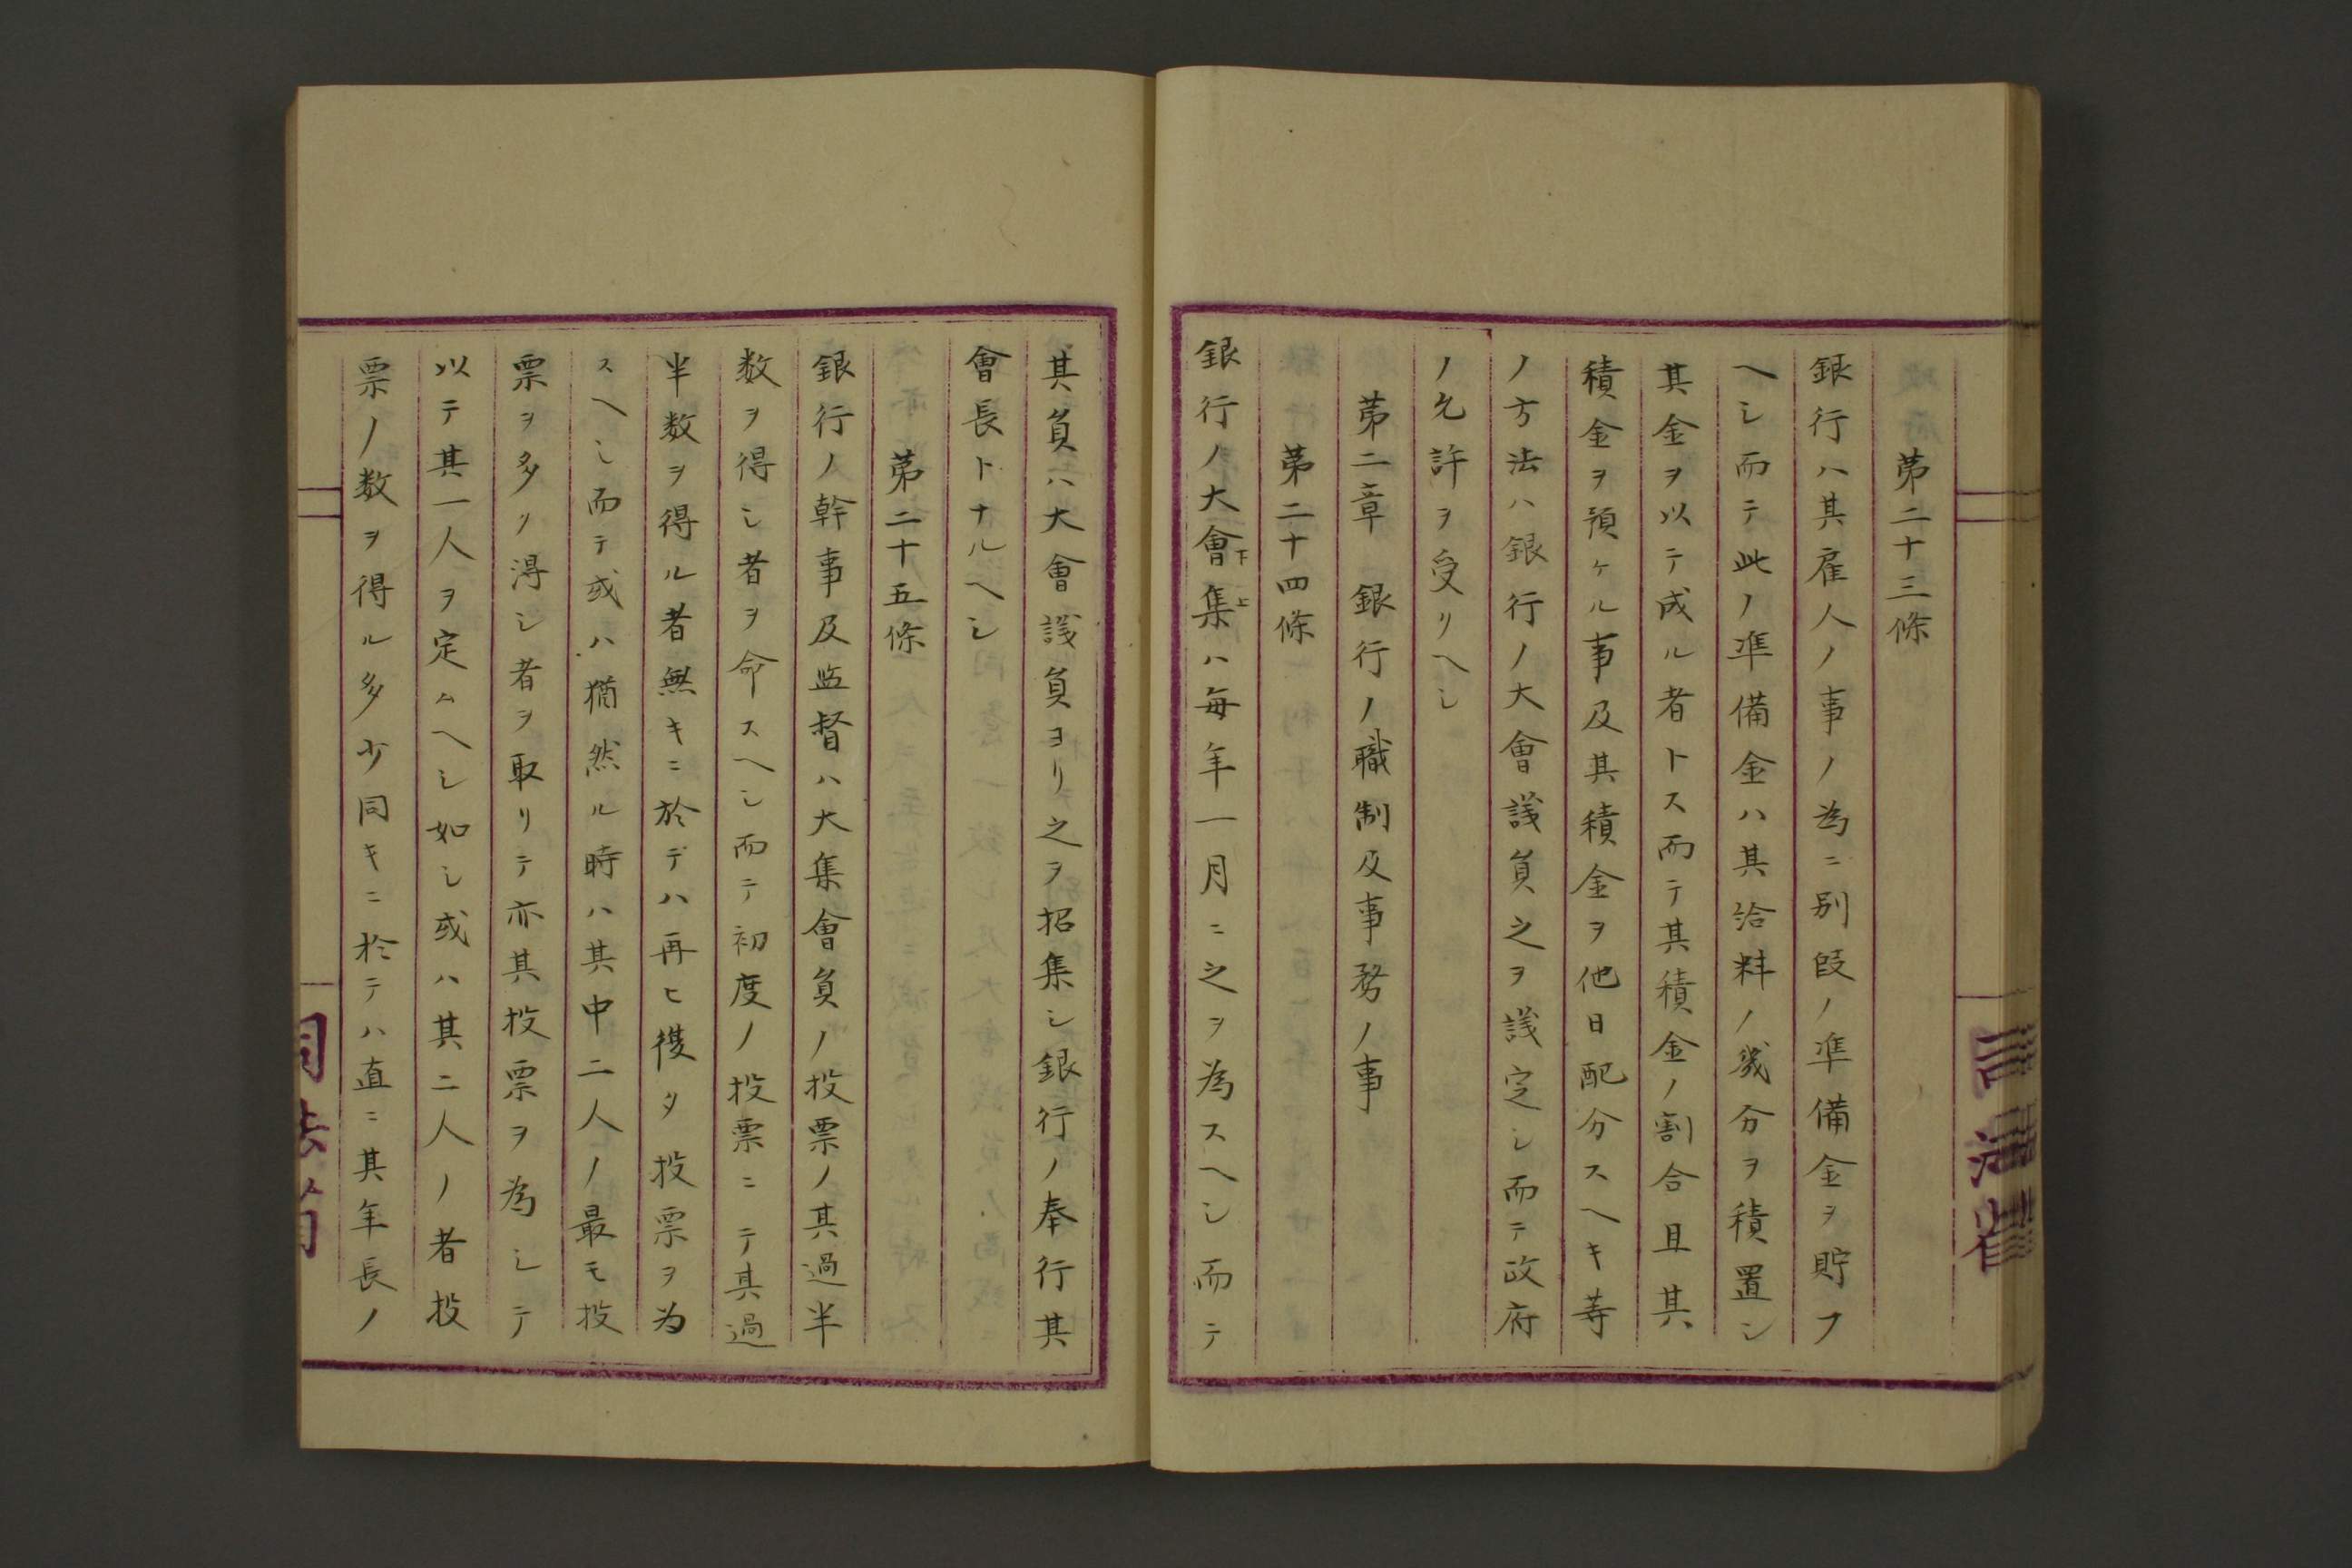 第二十三條
銀行ハ其雇人ノ事ノ為ニ別段ノ準備金ヲ貯フ
ヘシ而テ此ノ準備金ハ其給料ノ幾分ヲ積置シ
其金ヲ以テ成ル者トス而テ其積金ノ割合且其
積金ヲ預ケル事及其積金ヲ他日配分スヘキ等
ノ方法ハ銀行ノ大會議負之ヲ議定シ而テ政府
ノ允許ヲ受リヘシ
第二章 銀行ノ職制及事務ノ事
第二十四條
銀行ノ大會下集上ハ毎年一月ニ之ヲ為スヘシ而テ
其負ハ大會議負ヨリ之ヲ招集シ銀行ノ奉行其
會長トナルヘシ
第二十五條
銀行ノ幹事及監督ハ大集會負ノ投票ノ其過半
数ヲ得シ者ヲ命スヘシ而テ初度ノ投票ニテ其過
半数ヲ得ル者無キニ於デハ再ヒ復タ投票ヲ為
スヘシ而テ或ハ猶然ル時ハ其中二人ノ最モ投
票ヲ多リ得シ者ヲ取リテ亦其投票ヲ為シテ
以テ其一人ヲ定ムヘシ如シ或ハ其二人ノ者投
票ノ数ヲ得ル多少同キニ於テハ直ニ其年長ノ
司法省